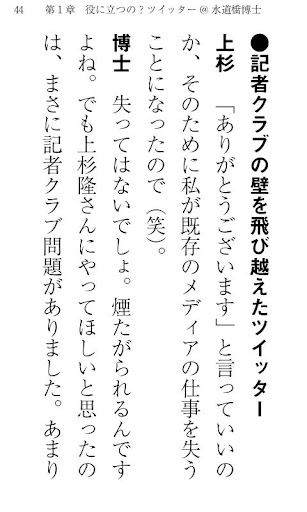 44　第１章　役に立つの？ツイッター＠水道橋博士
●記者クラブの壁を飛び越えたツイッター
上杉　「ありがとうございます」と言っていいの
か、そのために私が既存のメディアの仕事を失う
ことになったので（笑）。
博士　失ってはないでしょ。煙たがられるんです
よね。でも上杉隆さんにやってほしいと思ったの
は、まさに記者クラブ問題がありました。あまり